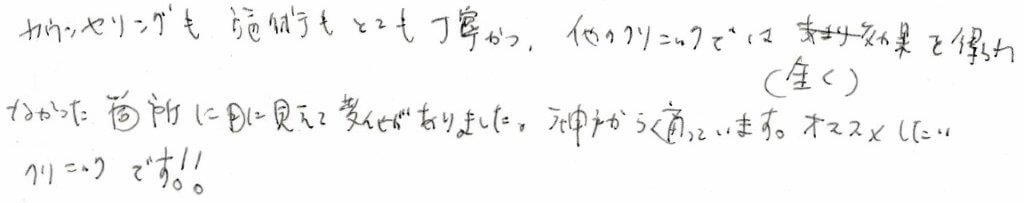 カウンセリングも施術もとても丁寧かつ、他のクリニックでは あまり効果を得られ
(全く)
なかった箇所に目に見えて変化がありました。神戸から通っています。オススメしたい
クリニックです!!。